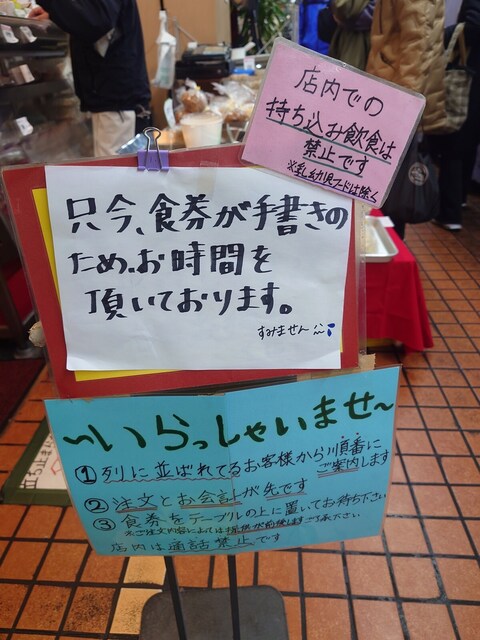 店内での
持ち込み飲食は
禁止です
※乳幼児フードは除く
只今、食券が手書きの
ため、お時間を
頂いております。
すみません
～いらっしゃいませ～
①列に並ばれてるお客様から順番に
ご案内します
②注文とお会計が先です
③食券をテーブルの上に置いてお待ち下さい
※ご注文内容によっては提供が前後します ご了承ください
店内は通話禁止です